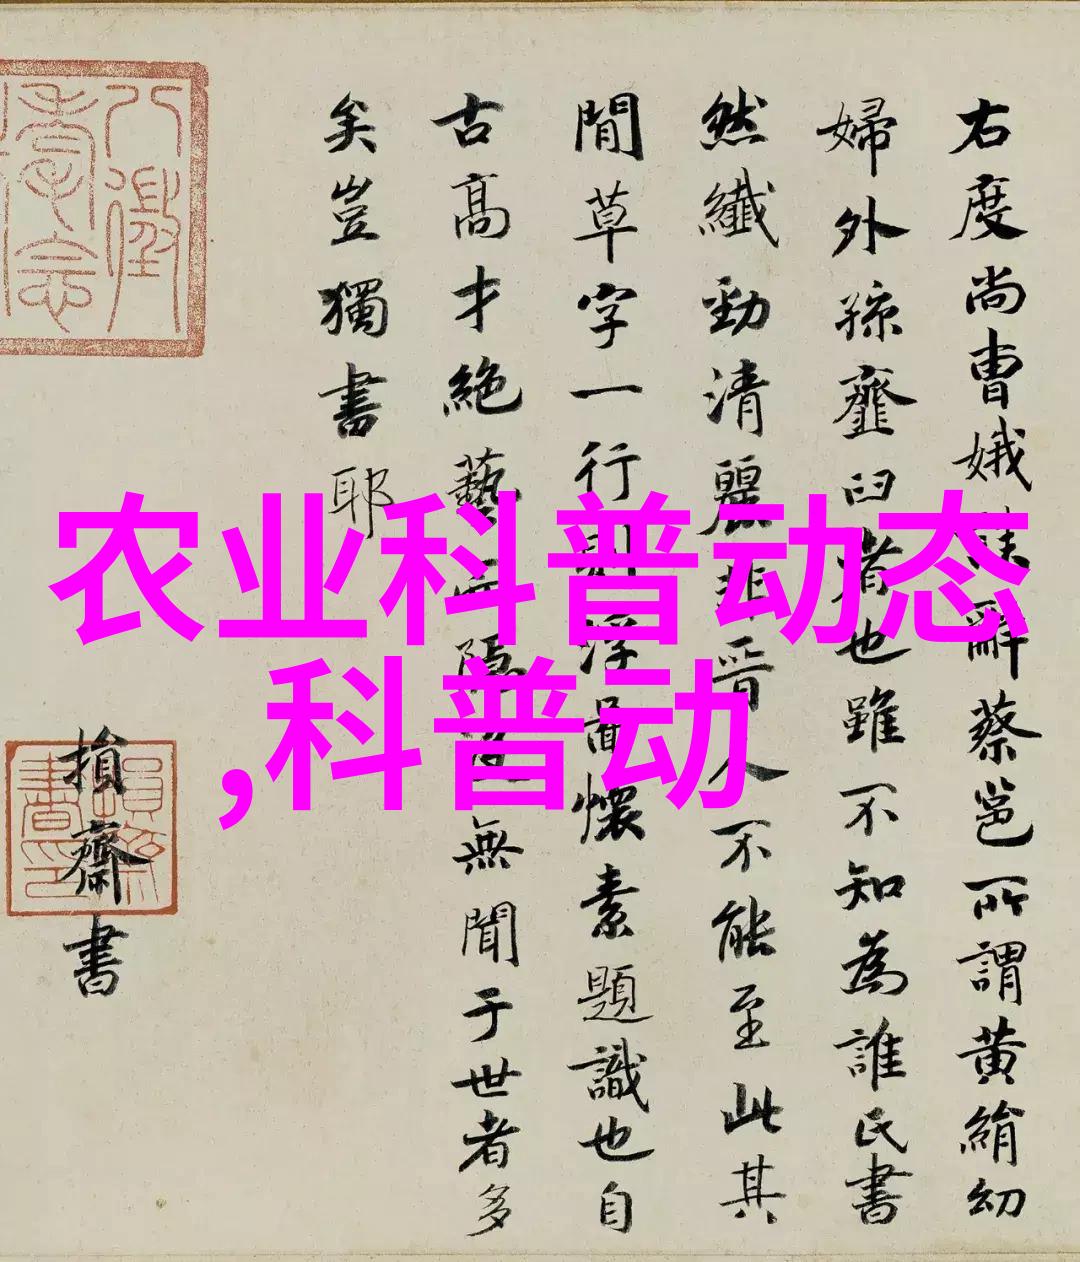 右度尚曹娥碑辭蔡邕所謂黄絹幼
婦外孫齏臼者也雖不知為誰氏書
然纖勁清麗非晉人不能至此其
間草字一行則浮圖懷素題識也自
古高才絕藝而隱沒無聞于世者多
矣豈獨書耶
損齋書
損齋書印
農业科普动态
,科普动